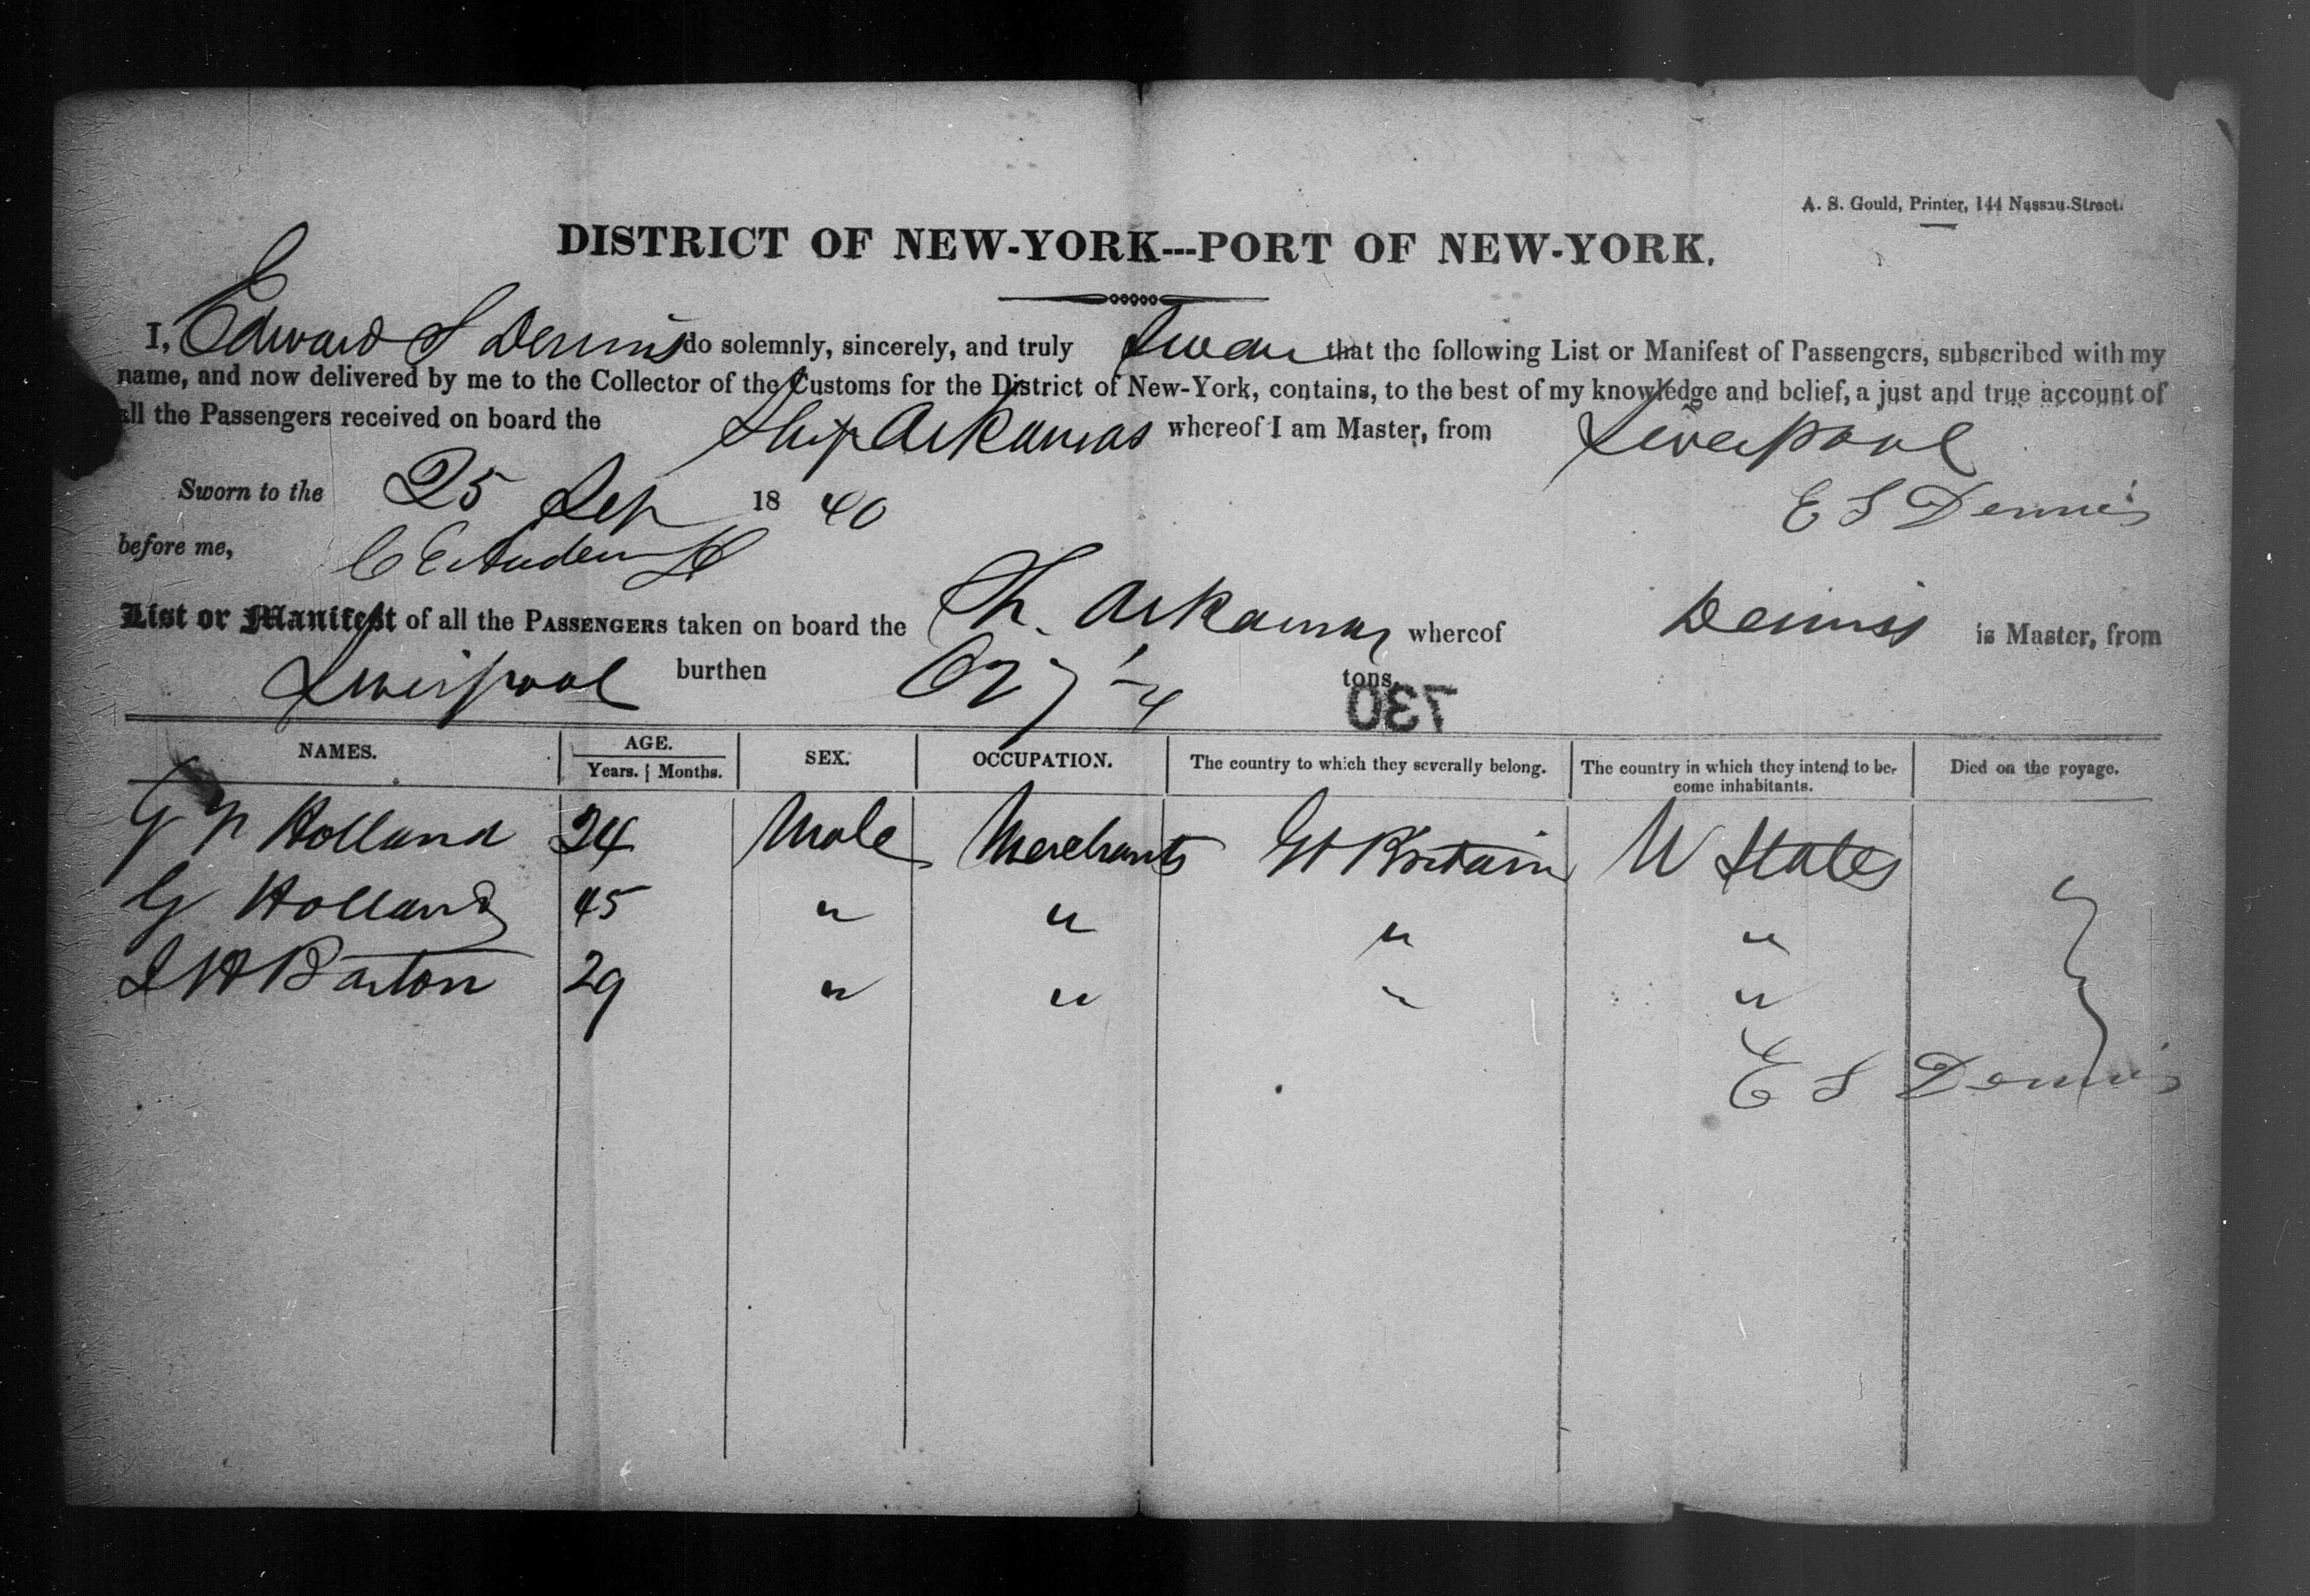 A. S. Gould, Printer, 144 Nassau-Street.
DISTRICT OF NEW-YORK---PORT OF NEW-YORK.
I, Edward S Dennis do solemnly, sincerely, and truly Swear that the following List or Manifest of Passengers, subscribed with my
name, and now delivered by me to the Collector of the Customs for the District of New-York, contains, to the best of my knowledge and belief, a just and true account of
all the Passengers received on board the Ship Arkansas whereof I am Master, from Liverpool
Sworn to the 25 Sep 1840 E S Dennis
before me,
List or Manifest of all the PASSENGERS taken on board the Sh. Arkansas whereof Dennis is Master, from
Liverpool burthen 627 tons.
730
NAMES. AGE. Years. Months. SEX. OCCUPATION. The country to which they severally belong. The country in which they intend to become inhabitants. Died on the voyage.
G N Holland 24 Male Merchants Gt Britain U States
G Holland 45 " " " "
J H Barton 29 " " " "
E S Dennis